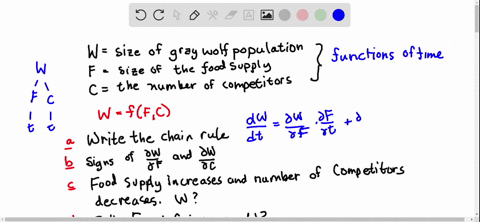 W = size of gray wolf population
F = size of the food supply
C = the number of competitors
} functions of time
W
F C
t t
W = f(F,C)
a Write the chain rule dW/dt = ∂W/∂F · ∂F/∂t + ∂
b Signs of ∂W/∂F and ∂W/∂C
c Food Supply increases and number of Competitors
decreases. W?